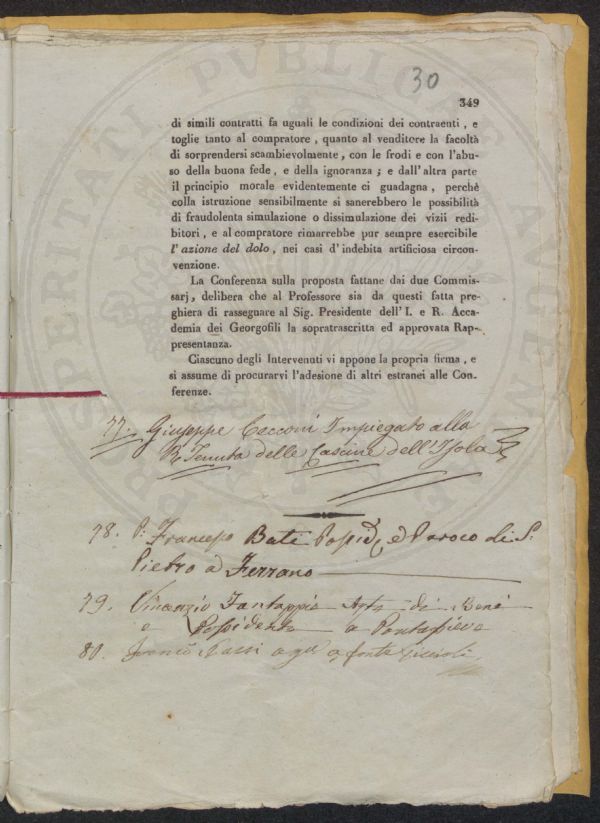 30
349
di simili contratti fa uguali le condizioni dei contraenti , e
toglie tanto al compratore , quanto al venditore la facoltà
di sorprendersi scambievolmente , con le frodi e con l'abu-
so della buona fede , e della ignoranza ; e dall'altra parte
il principio morale evidentemente ci guadagna , perchè
colla istruzione sensibilmente si sanerebbero le possibilità
di fraudolenta simulazione o dissimulazione dei vizii redi-
bitori , e al compratore rimarrebbe pur sempre esercibile
l'azione del dolo, nei casi d'indebita artificiosa circon-
venzione.
La Conferenza sulla proposta fattane dai due Commis-
sarj, delibera che al Professore sia da questi fatta pre-
ghiera di rassegnare al Sig. Presidente dell'I. e R. Acca-
demia dei Georgofili la sopratrascritta ed approvata Rap-
presentanza.
Ciascuno degli Intervenuti vi appone la propria firma , e
si assume di procurarvi l'adesione di altri estranei alle Con-
ferenze.
77. Giuseppe Cecconi Impiegato alla
R. Tenuta delle Cascine dell'Isola
78. P. Francesco Bati Possid. ed Paroco di S.
Pietro a Ferrano
79. Vincenzio Fantappiè Agte di Beni
e Possidente a Pontassieve
80. Nassi a
PROSPERITATI PVBLICAE AVGENDAE